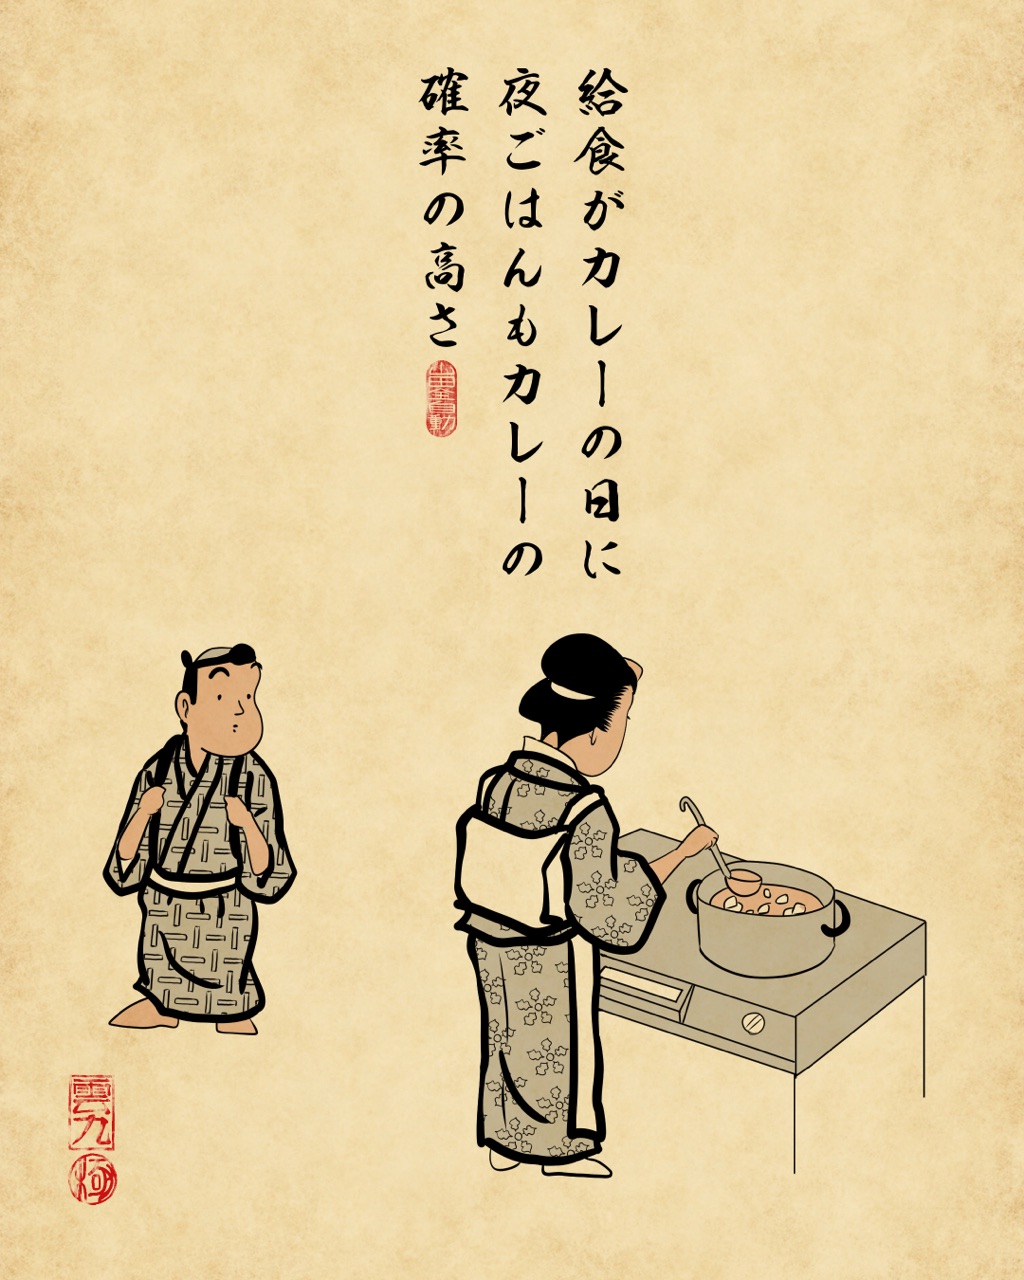 給食がカレーの日に
夜ごはんもカレーの
確率の高さ